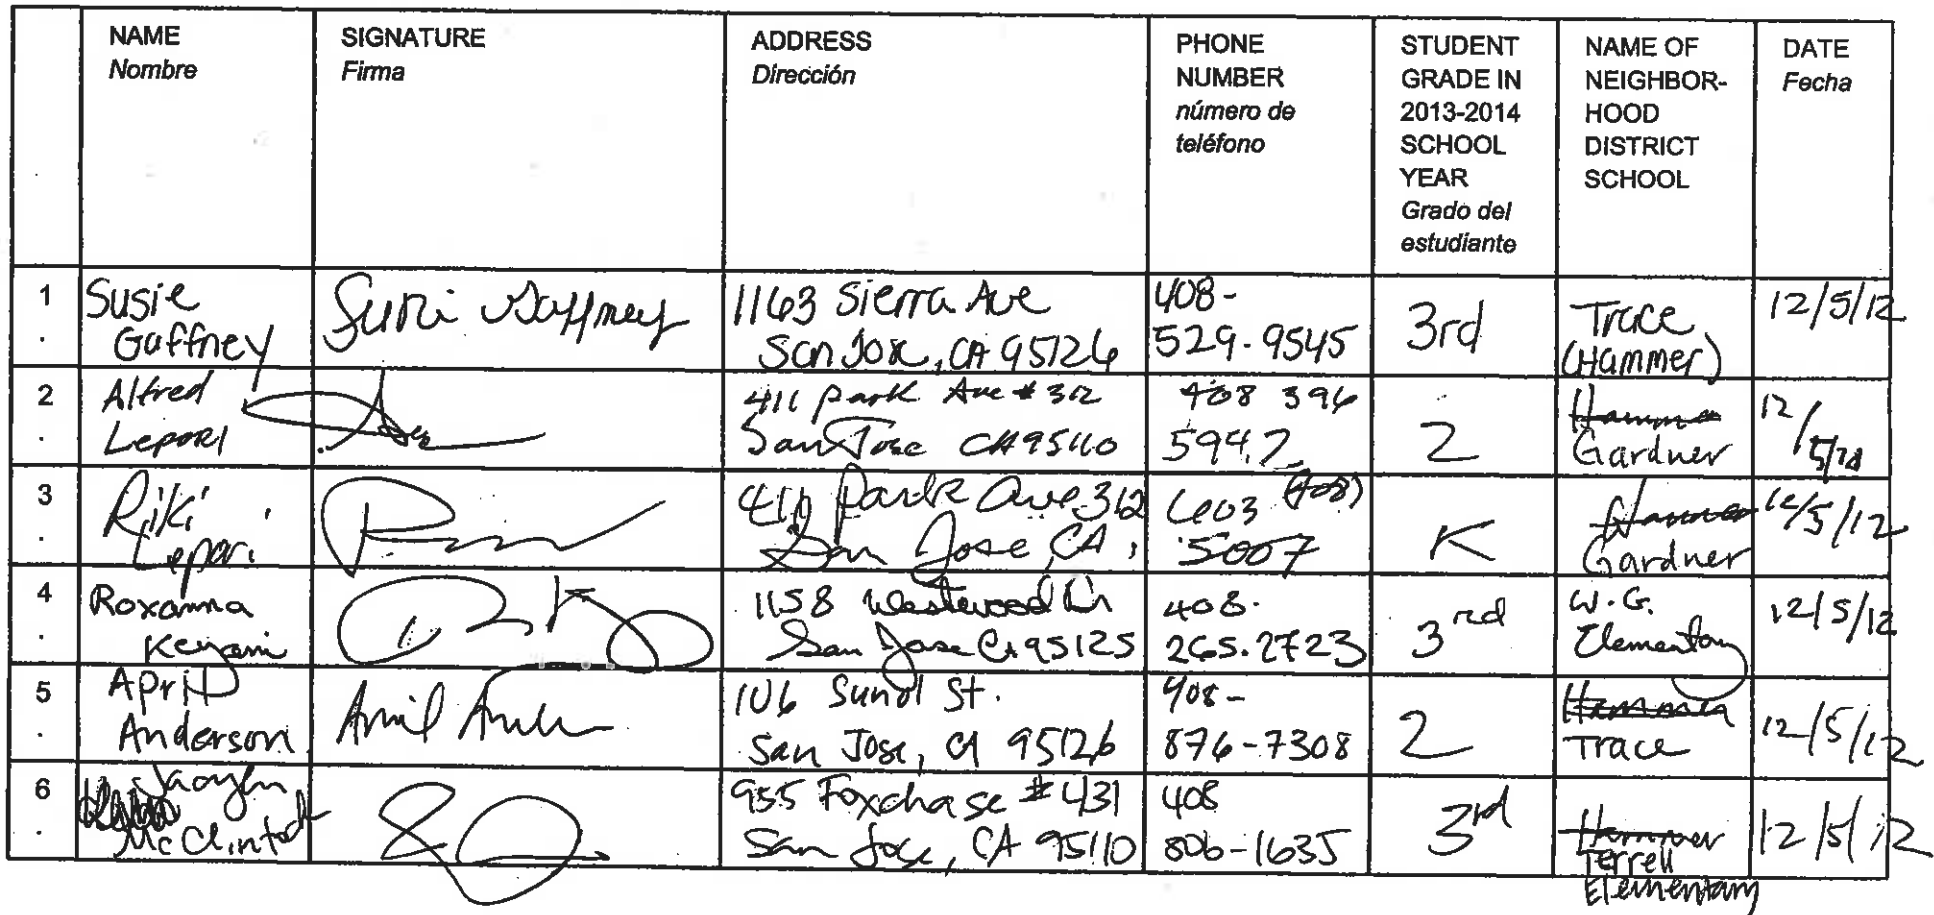 NAME
Nombre
SIGNATURE
Firma
ADDRESS
Dirección
PHONE
NUMBER
número de
teléfono
STUDENT
GRADE IN
2013-2014
SCHOOL
YEAR
Grado del
estudiante
NAME OF
NEIGHBOR-
HOOD
DISTRICT
SCHOOL
DATE
Fecha
1
.
Susie
Gaffney
Gaffney
1163 Sierra Ave
San Jose, CA 95126
408-
529-9545
3rd
Trace
(Hammer)
12/5/12
2
.
Alfred
Lepori
411 Park Ave #312
San Jose CA 95110
408 396
5942
2
Gardner
12/
3
.
Riki
Lepori
411 Park Ave 312
San Jose, CA,
(408)
5007
K
Gardner
12/5/12
4
.
Roxanna
1158 Westwood Dr
San Jose Ca 95125
408-
265-2723
3rd
W.G.
Elementary
12/5/12
5
.
April
Anderson
106 Sunol St.
San Jose, CA 95126
408-
876-7308
2
Trace
12/5/12
6
.
McClintock
955 Foxchase #431
San Jose, CA 95110
408
806-1635
3rd
Hammer
Terrell
Elementary
12/5/12